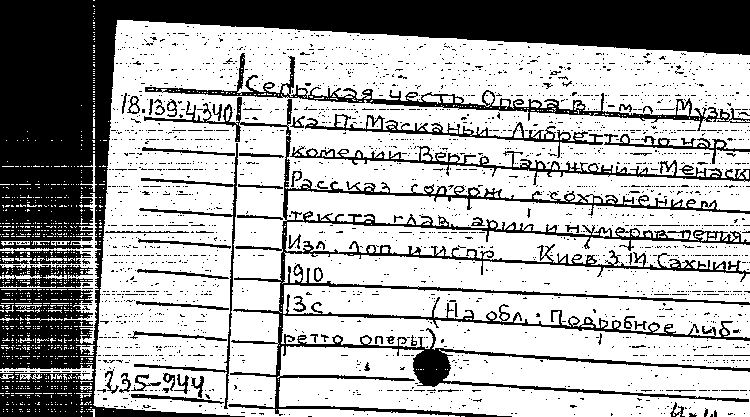 Сельская честь Опера в 1-м д. Музы-
18.139.4.340 ка П. Масканьи. Либретто по нар.
комедии Верга, Тарджони и Менаск
Рассказ содерж. с сохранением
текста глав. арий и нумеров пения.
Изд. доп. и испр. Киев, З.М. Сахнин,
1910.
13 с. (На обл.: Подробное либ-
ретто оперы).
235-944